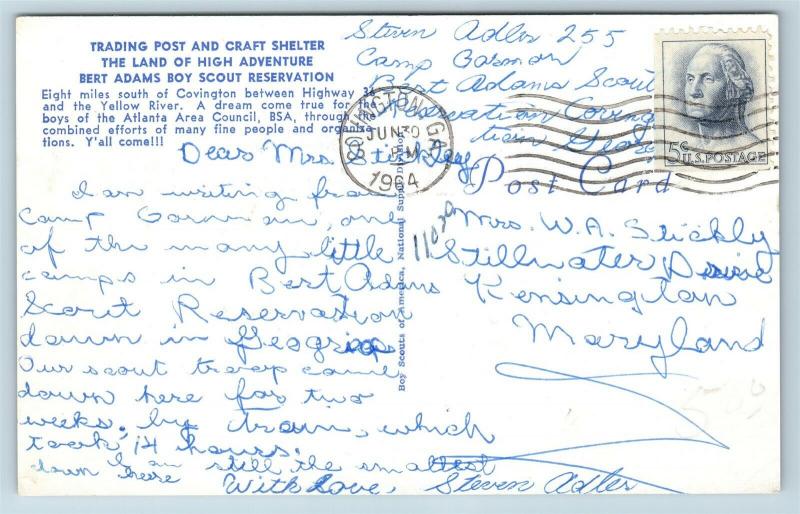 TRADING POST AND CRAFT SHELTER
THE LAND OF HIGH ADVENTURE
BERT ADAMS BOY SCOUT RESERVATION
Eight miles south of Covington between Highway 36
and the Yellow River. A dream come true for the
boys of the Atlanta Area Council, BSA, through the
combined efforts of many fine people and organiza-
tions. Y'all come!!!
Steven Adler 255
Camp Gorman
Bert Adams Scout
Reservation Coving
tion Geo
COVINGTON, GA.
JUN 30
PM
1964
5¢ U.S. POSTAGE
Post Card
Dear Mrs. Stickley,
I am writing from
Camp Gorman, one
of the many little
camps in Bert Adams
Scout Reservation
down in Georgia
Our scout troop came
down here for two
weeks, by train, which
took 14 hours.
I am still the smallest
down here
With Love, Steven Adler
Boy Scouts of America, National Supply Division
11020
Mrs. W.A. Stickly
Stillwater
Kensington
Maryland
5.00